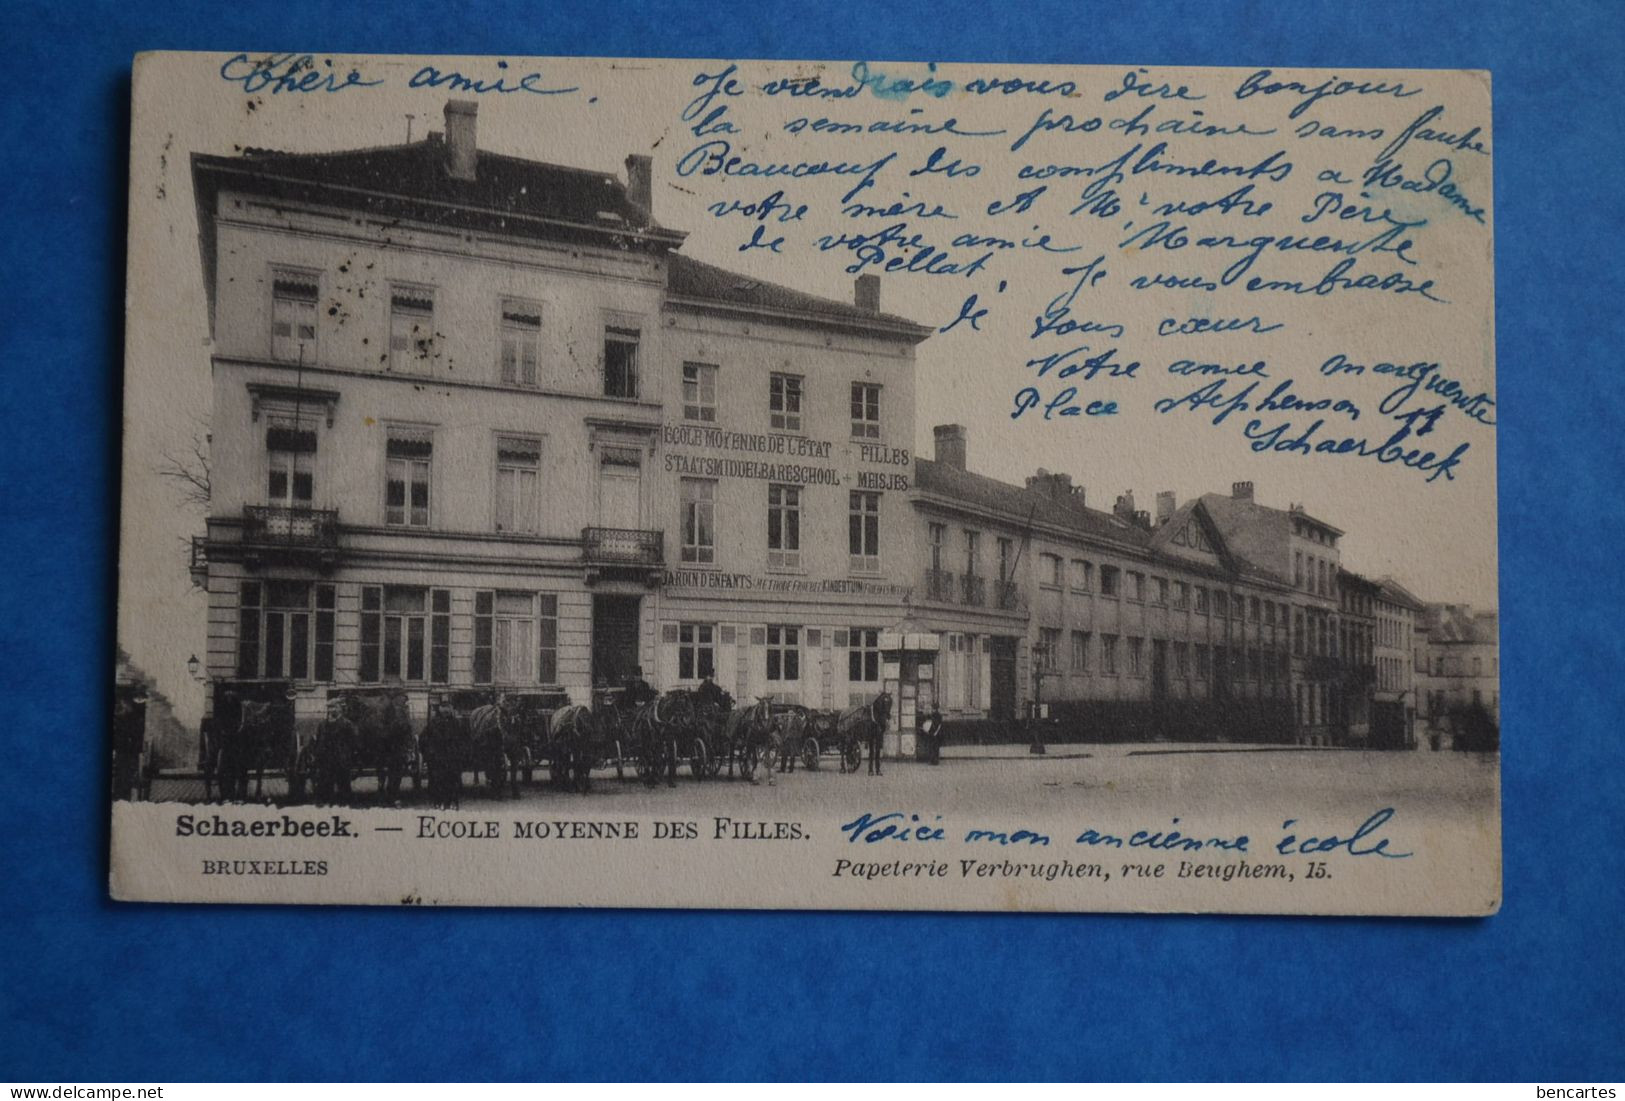 Chère amie.
Je viendrais vous dire bonjour
la semaine prochaine sans faute
Beaucoup des compliments a Madame
votre mère et Mr votre Père
de votre amie Marguerite
Pellat. Je vous embrasse
de tous cœur
Votre amie marguerite
Place Stephenson 11
Schaerbeek
ÉCOLE MOYENNE DE L'ÉTAT + FILLES
STAATSMIDDELBARESCHOOL + MEISJES
JARDIN D'ENFANTS METHODE FROEBEL KINDERTUIN
Schaerbeek. — ECOLE MOYENNE DES FILLES.
Voici mon ancienne école
BRUXELLES
Papeterie Verbrughen, rue Beughem, 15.
delcampe.net
bencartes